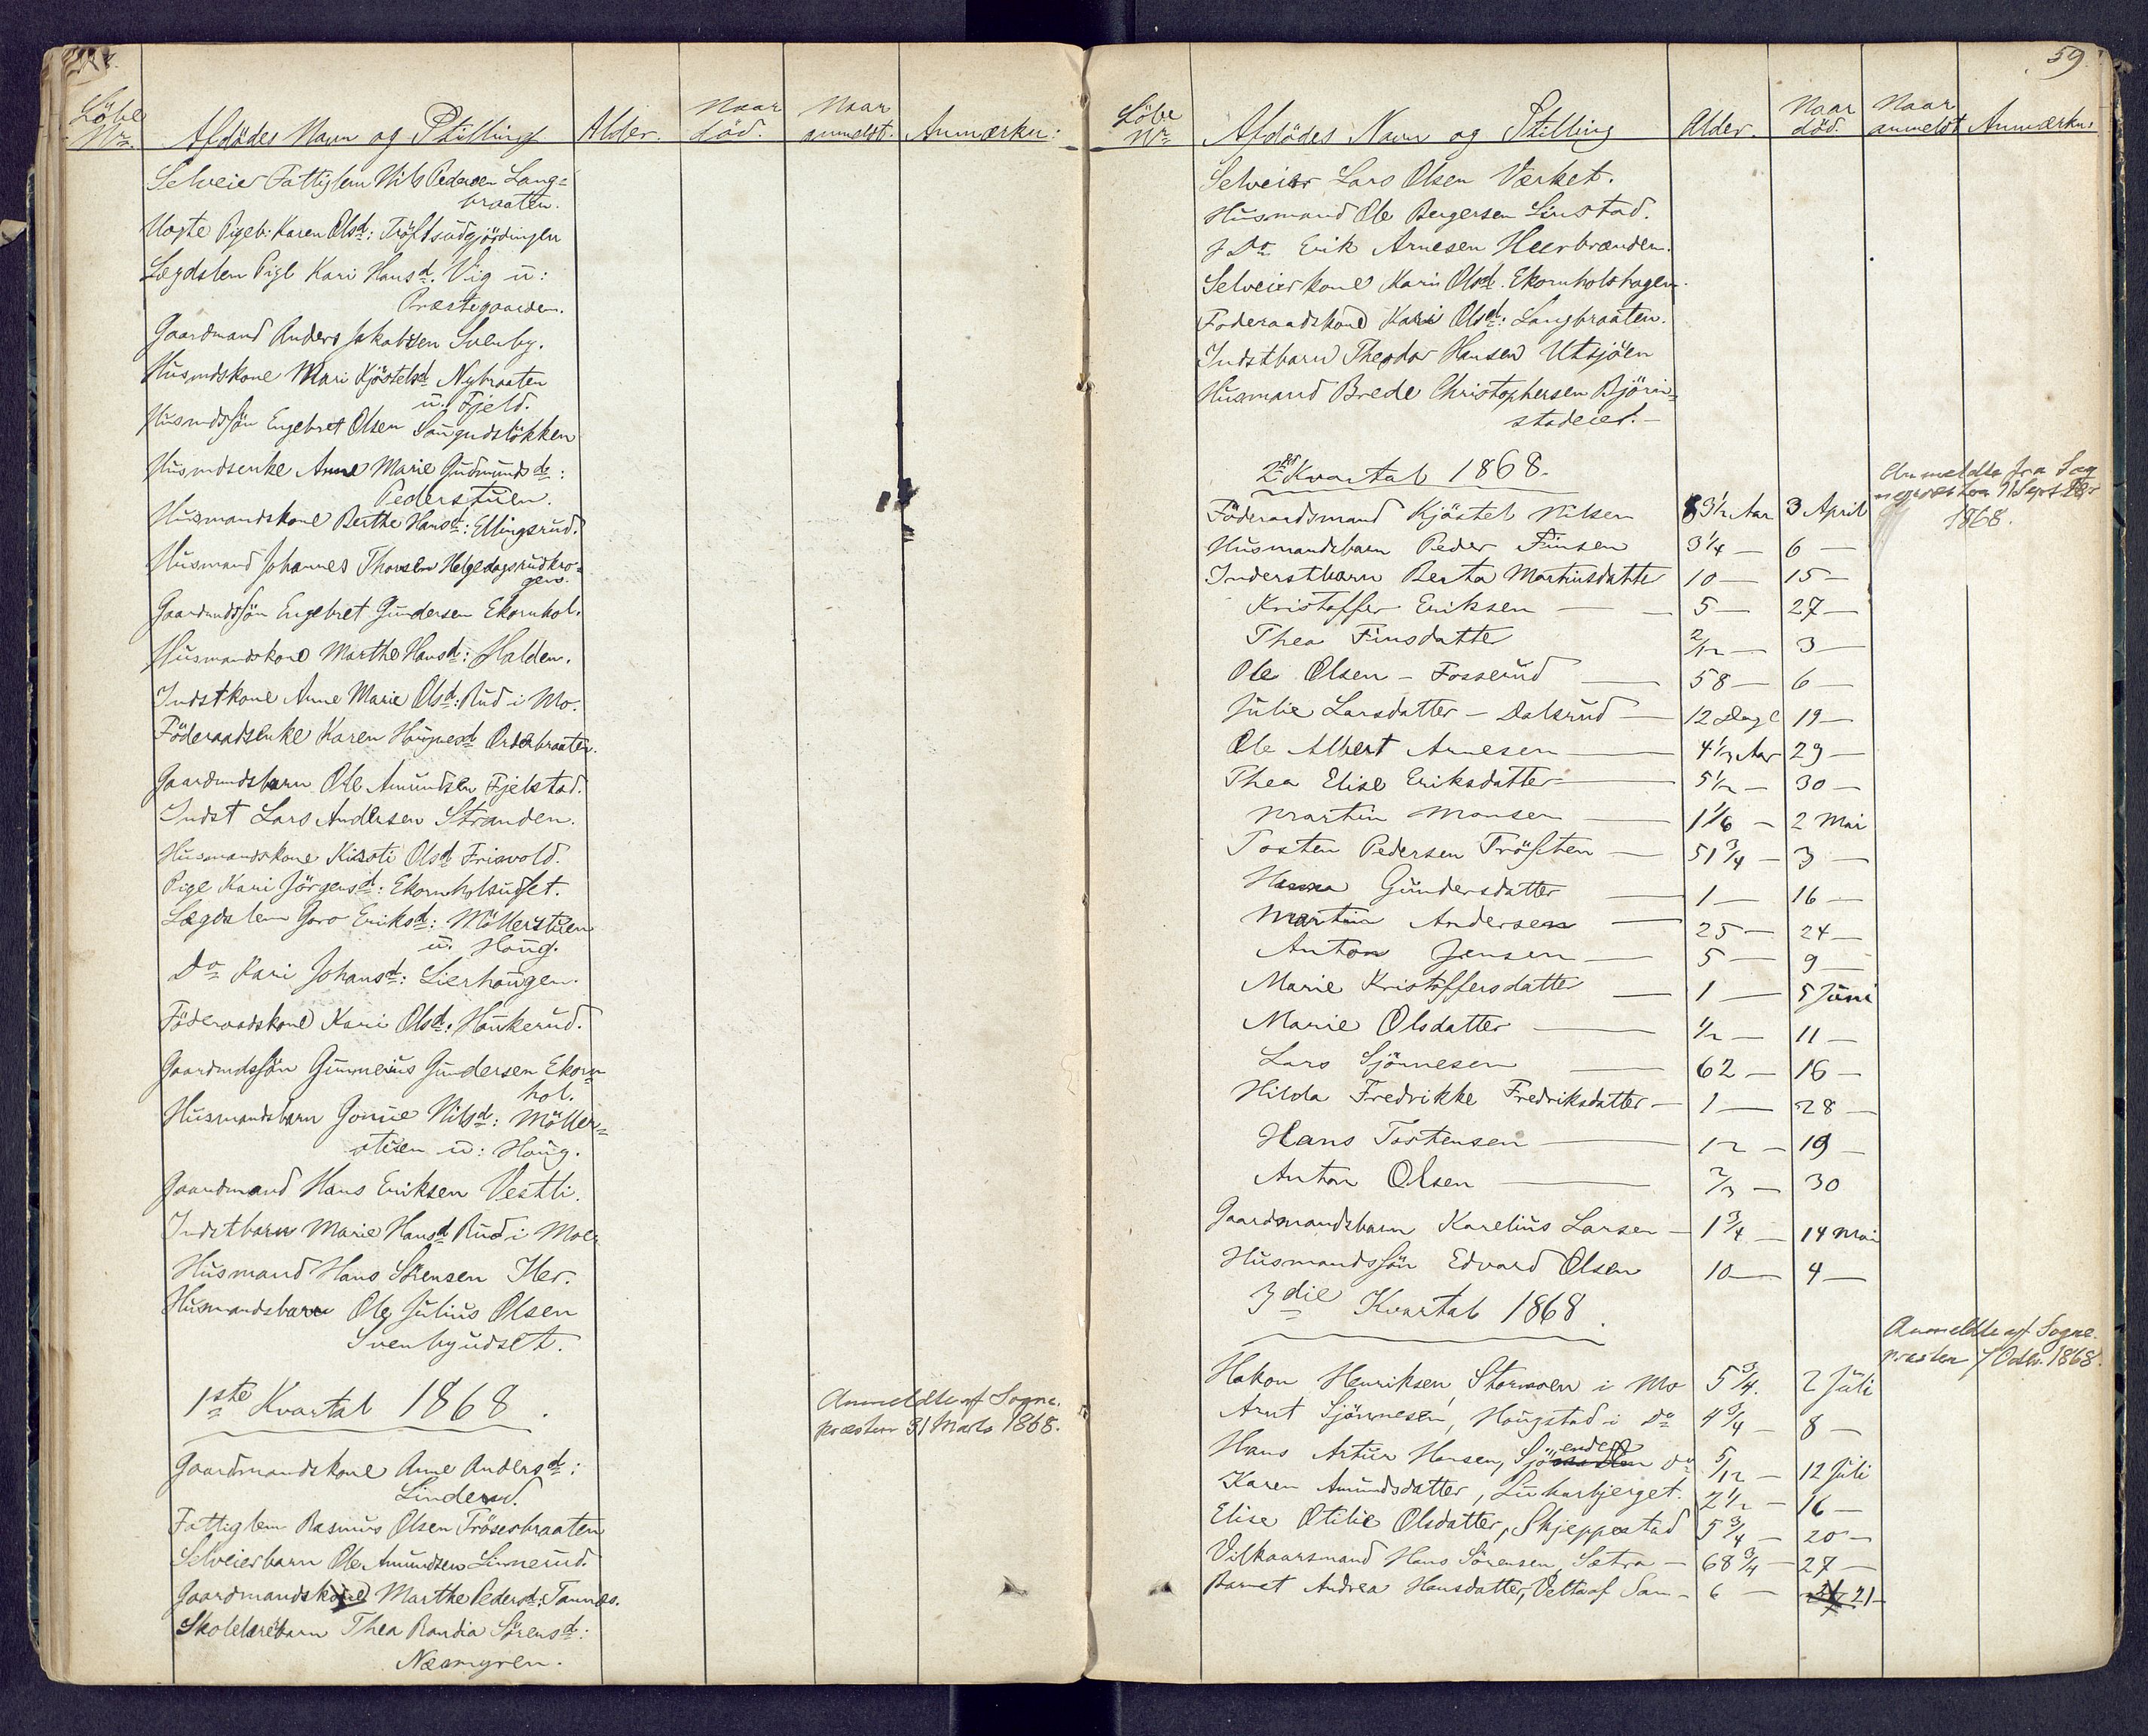 Löbe
Nr.
Afdödes Navn og Stilling
Alder.
Naar
död.
Naar
anmeldt.
Anmærkn:
Selveier Fattiglem Nils Pedersen Lang=
braaten.
Ugte Pigeb. Karen Olsd:
Lægdslem Pige Kari Hansd. Vig u:
Præstegaarden.
Gaardmand Anders Jakobsen Svenby.
Husmdskone Mari Kjöstelsd. Nybraaten
u. Fjeld.
Husmdssön Engebret Olsen
Husmdsenke Anne Marie Gudmundsd:
Pederstuen.
Husmandskone Berthe Hansd: Ellingsrud.
Husmand Johannes Thorsen Helgedagsrudkro-
gen.
Gaardmdssön Engebret Gundersen Ekornhol.
Husmandskone Marthe Hansd: Halden.
Indstkone Anne Marie Olsd: Rud i Mo.
Föderaadsenke Karen Hansd. Orderbraaten.
Gaardmdsbarn Ole Amundsen Fjelstad.
Indst Lars Andersen Stranden.
Husmandskone Kirsti Olsd Frisvold.
Pige Kari Jörgensd: Ekornholsudset.
Lægdslem Goro Eriksd: Möllerstuen
u. Houg.
Do Kari Johansd: Lierhougen.
Föderaadskone Kari Olsd. Haukerud.
Gaardmdssön Gunnerius Gundersen Ekorn
hol.
Husmandsbarn Gonue Nilsd: Möller=
stuen u: Houg.
Gaardmand Hans Eriksen Vestli.
Indstbarn Marie Hansd Rud i Moe.
Husmand Hans Sörensen Ker.
Husmandsbarn Ole Julius Olsen
Svenbyudset.
1ste Kvartal 1868.
Anmeldte af Sogne-
præsten 31 Marts 1868.
Gaardmandskone Anne Andersd:
Linderud.
Fattiglem Rasmus Olsen Tröserbraaten
Selveierbarn Ole Amundsen Linnerud.
Gaardmandskone Marthe Pedersd: Tannæs.
Skolelærebarn Thea Randia Sörensd:
Næsmyren.
59.
Löbe
Nr
Afdödes Navn og Stilling
Alder.
Naar
död.
Naar
anmeldt
Anmærkn:
Selveier Lars Olsen Værket.
Husmand Ole Bergersen Linstad.
Do Erik Arnesen Heerbrænden.
Selveierkone Karin Olsd. Ekornholshagen.
Foderaadskone Kari Olsd: Langbraaten.
Indstbarn Theodor Hansen Utsjöen
Husmand Brede Christophersen Björn=
stadeiet.
2det Kvartal 1868.
Anmeldte fra Sog
nepræsten 1 Sept
1868.
Föderaadsmand Kjöstel Nilsen 83½ Aar 3 April
Husmandsbarn Peder Finsen 3¼ — 6 —
Inderstbarn Berta Martinsdatter 10 — 15 —
Kristoffer Eriksen — 5 — 27 —
Thea Finsdatter 2/12 — 3 —
Ole Olsen - Fosserud — 58 — 6 —
Julie Larsdatter - Dalsrud — 12 Dage 19 —
Ole Albert Arnesen — 4⅓ Aar 29 —
Thea Elise Eriksdatter — 5½ — 30 —
Martin Monsen — 1 1/6 — 2 Mai
Tosten Pedersen Tröften — 51¾ — 3 —
Hanna Gundersdatter — 1 — 16 —
Martin Andersen — 25 — 24 —
Anton Jensen — 5 — 9 —
Marie Kristoffersdatter — 1 — 5 Juni
Marie Olsdatter — ½ — 11 —
Lars Sjönnesen — 62 — 16 —
Hilda Fredrikke Fredriksdatter — 1 — 28 —
Hans Tostensen — 12 — 19 —
Anton Olsen — ⅔ — 30
Gaardmandsbarn Karelius Larsen — 1¾ — 14 Mai
Husmandssön Edvard Olsen 10 — 4 —
3die Kvartal 1868.
Anmeldte af Sogne-
præsten 7 Octb. 1868.
Hakon Henriksen, Stormoen i Mo 5¾. 2 Juli
Arnt Sjönnesen, Hougstad i Do 4¾ — 8 —
Hans Artur Hansen, Sjöenden Do 5/12 — 12 Juli
Karen Amundsdatter, Lukasbjerget. 2½ — 16 —
Elise Otilie Olsdatter, Skjeppestad 5¾ — 20 —
Vilkaarsmand Hans Sörensen, Sætra — 68¾ — 27 —
Barnet Andrea Hansdatter, 6 — 21 —